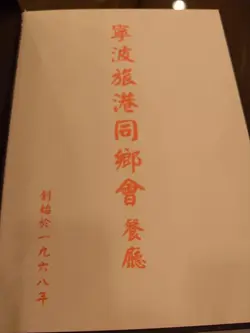 寧波旅港同鄉會餐廳
創始於一九六八年